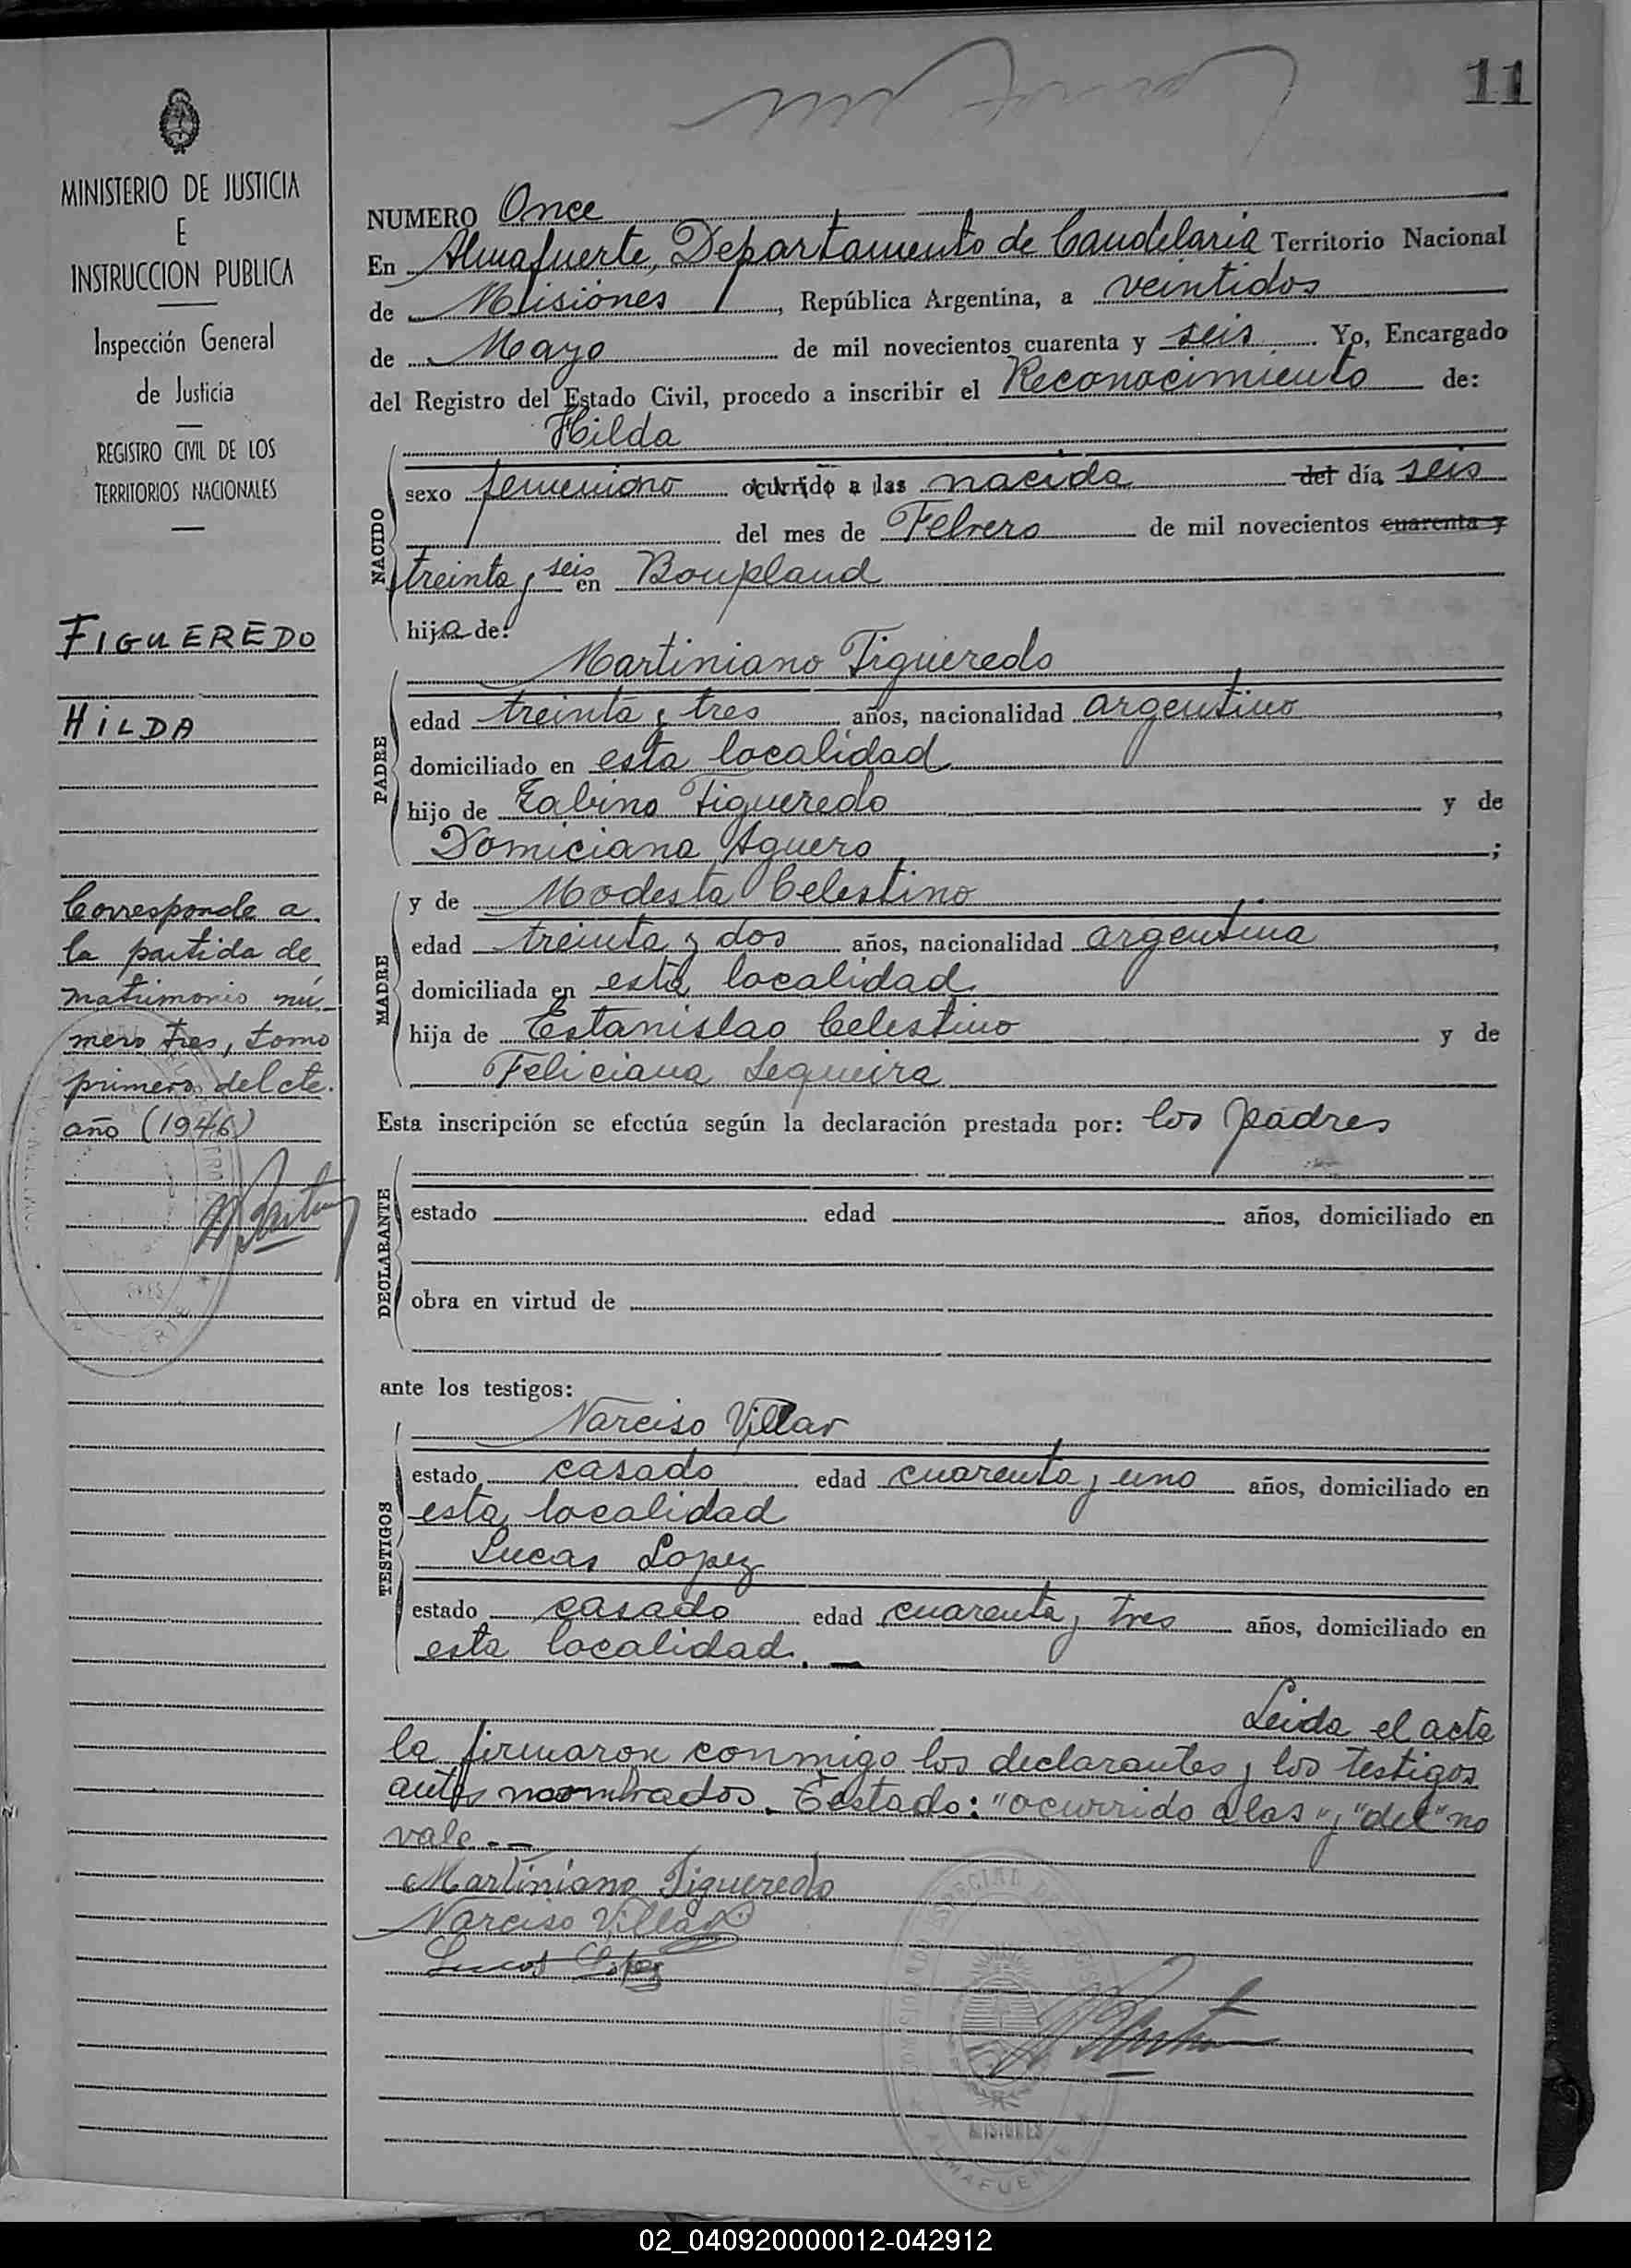 11
MINISTERIO DE JUSTICIA
E
INSTRUCCION PUBLICA
Inspección General
de Justicia
REGISTRO CIVIL DE LOS
TERRITORIOS NACIONALES
FIGUEREDO
HILDA
Corresponde a
la partida de
matrimonio nú-
mero tres, tomo
primero del cte.
año (1946)
NUMERO Once
En Almafuerte, Departamento de Candelaria Territorio Nacional
de Misiones, República Argentina, a veintidos
de Mayo de mil novecientos cuarenta y seis. Yo, Encargado
del Registro del Estado Civil, procedo a inscribir el Reconocimiento de:
Hilda
NACIDO
sexo femenino ocurrido a las nacida del día seis
del mes de Febrero de mil novecientos cuarenta y
treinta y seis en Bonpland
hija de:
Martiniano Figueredo
PADRE
edad treinta y tres años, nacionalidad argentino,
domiciliado en esta localidad
hijo de Zabino Figueredo y de
Domiciana Aguero;
y de Modesta Celestino
MADRE
edad treinta y dos años, nacionalidad argentina,
domiciliada en esta localidad
hija de Estanislao Celestino y de
Feliciana Sequeira
Esta inscripción se efectúa según la declaración prestada por: los padres
DECLARANTE
estado edad años, domiciliado en
obra en virtud de
ante los testigos:
Narciso Villar
TESTIGOS
estado casado edad cuarenta y uno años, domiciliado en
esta localidad
Lucas Lopez
estado casado edad cuarenta y tres años, domiciliado en
esta localidad.
Leida el acta
la firmaron conmigo los declarantes y los testigos
antes nombrados. Testado: "ocurrido a las" y "del" no
vale.-
Martiniano Figueredo
Narciso Villar
Lucas Lopez
MISIONES
ALMAFUERTE
02_040920000012-042912